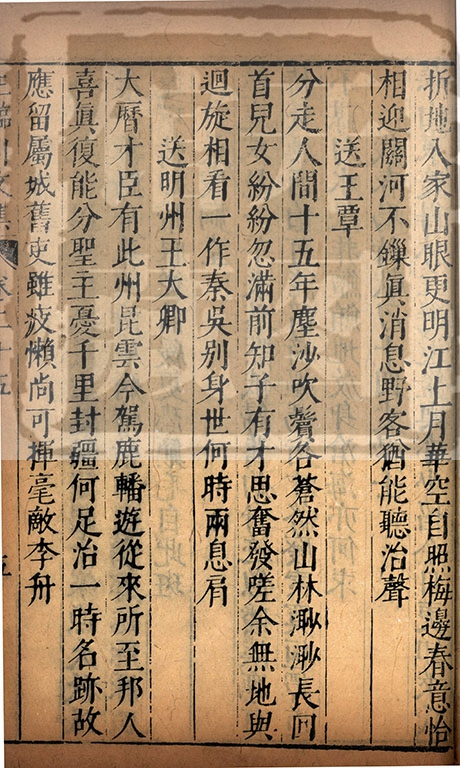 折地入家山眼更明江上月華空自照梅邊春意恰
相迎關河不鏁眞消息野客猶能聽治聲
送王覃
分走人間十五年塵沙吹鬢各蒼然山林渺渺長回
首兒女紛紛忽滿前知子有才思奮發嗟余無地與
迴旋相看一作秦吳别身世何時兩息肩
送明州王大卿
大曆才臣有此州昆雲今駕鹿轓遊從來所至邦人
喜眞復能分聖主憂千里封疆何足治一時名跡故
應留屬城舊吏雖疲懶尚可揮毫敵李舟
臨川文集 卷二十五
五